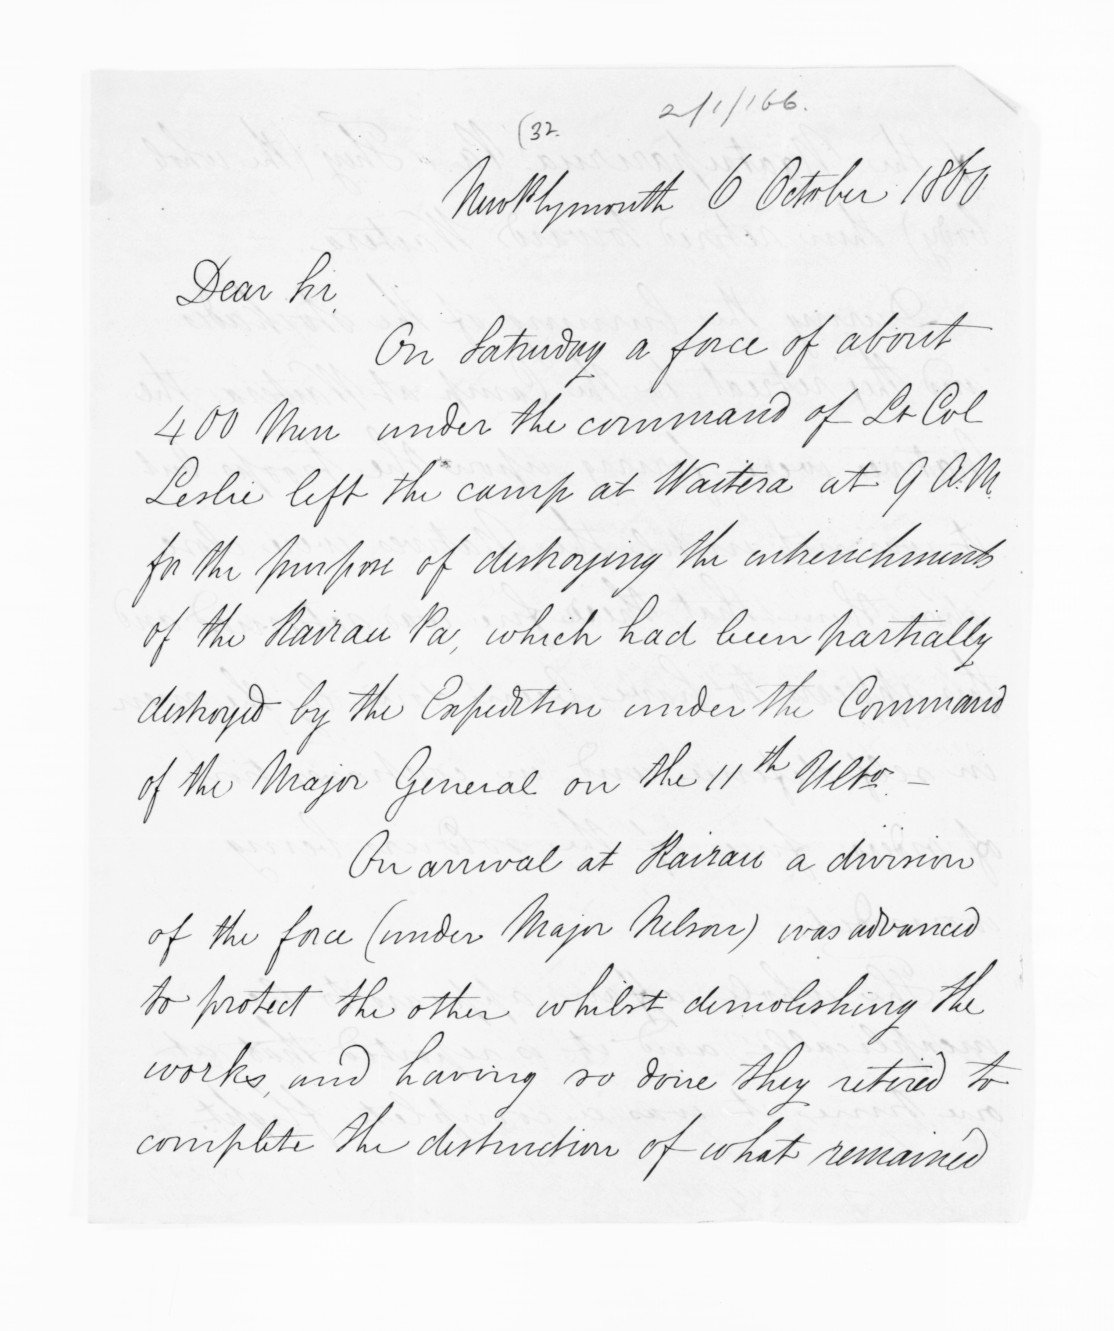 2/1/166.
(32.
New Plymouth 6 October 1860
Dear Sir,
On Saturday a force of about
400 Men under the command of Lt Col
Leslie left the camp at Waitera at 9 A.M.
for the purpose of destroying the entrenchments
of the Kairau Pa, which had been partially
destroyed by the Expedition under the Command
of the Major General on the 11th Ulto. -
On arrival at Kairau a division
of the force (under Major Nelson) was advanced
to protect the other whilst demolishing the
works, and having so done they retired to
complete the destruction of what remained